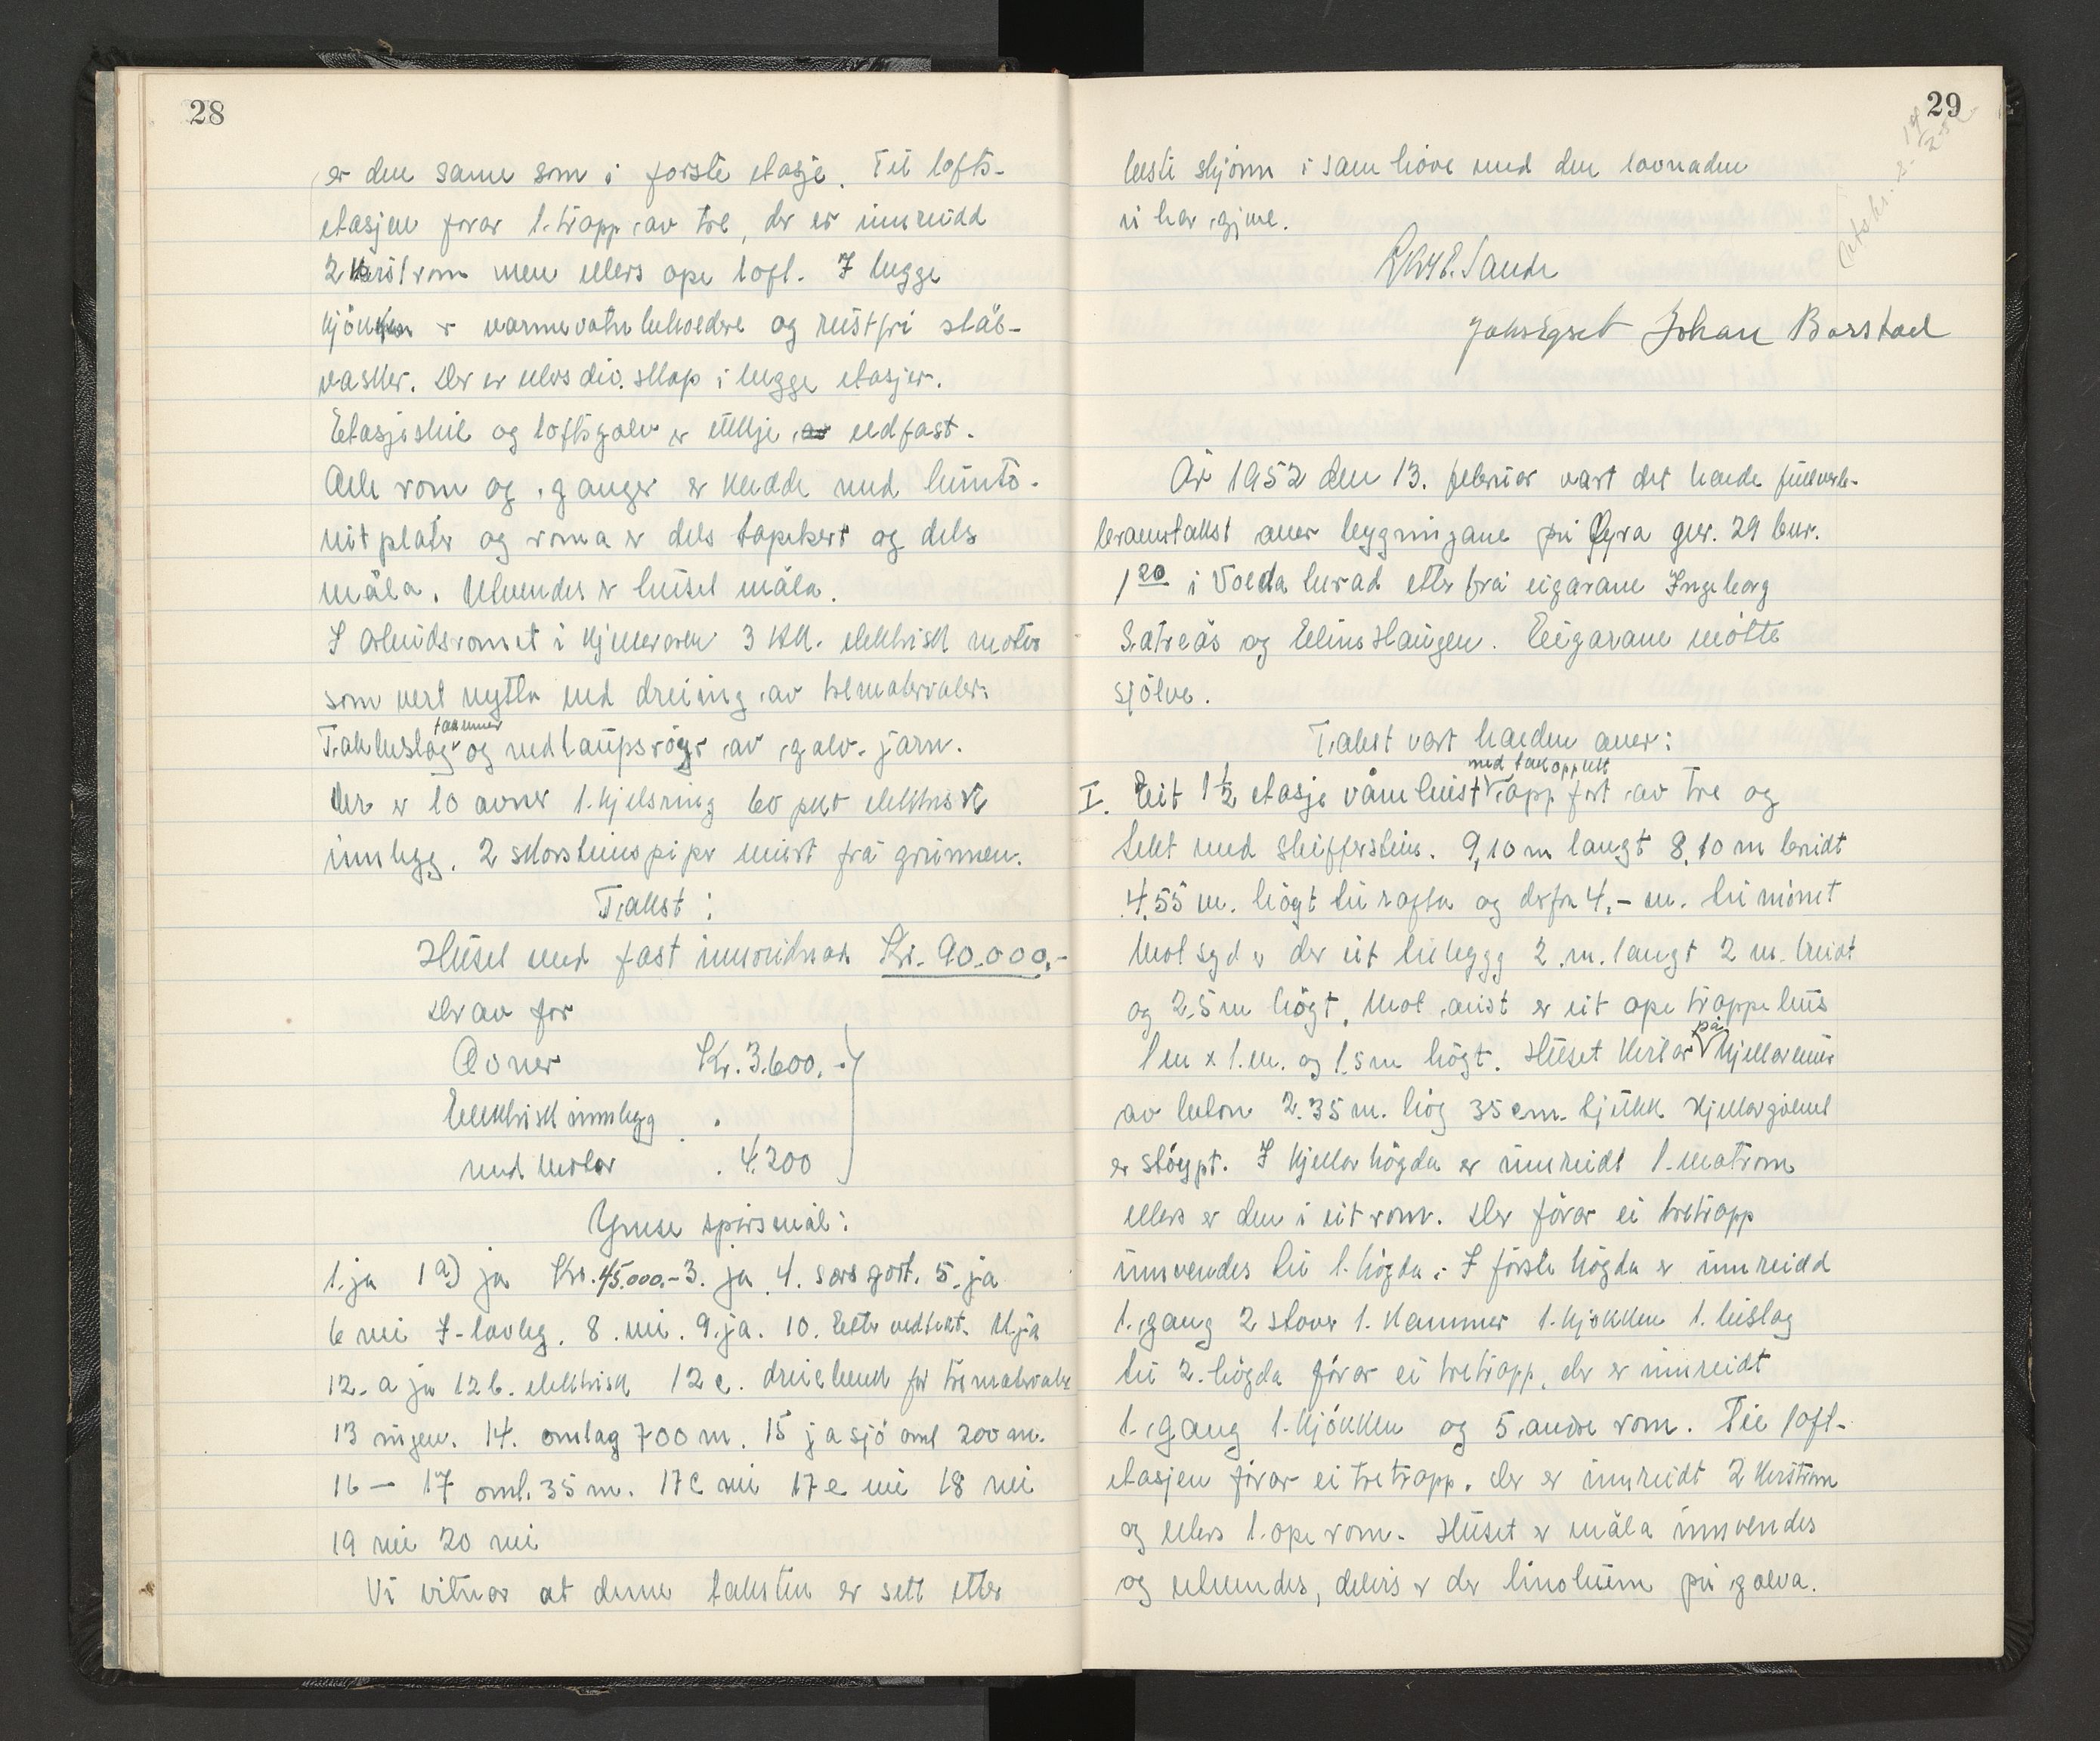 28
er den same som i første etasje. Til lofts-
etasjen förar 1. trapp av tre, der er innreidd
2 kvistrom men ellers ope loft. I begge
kjökken er varmevatnbehaldere og rustfri stål-
vasker. Der er elles div. skap i begge etasjer.
Etasjeskil og loftsgolv er ikkje eldfast.
Alle rom og ganger er kledde med hunto-
nit plater og roma er dels tapetsert og dels
måla. Utvendes er huset måla.
I arbeidsromet i kjellaren 3 Hk. elektrisk motor
som vert nytta ved dreiing av trematerialer.
Takbeslag takrenner og nedlaupsrøyr av galv. jarn.
Der er 10 omner 1. kjelsring 60 pkt elektrisk
innlegg. 2 skorsteinspiper murt frå grunnen.
Takst:
Huset med fast innreidnad Kr. 90.000,-
Derav for
Ovner Kr. 3.600.-
Elektrisk innlegg
med motor . 4.200
Ymse spörsmål:
1. ja 1 a) ja Kr. 45.000.- 3. ja 4. sers godt. 5. ja
6 nei 7. lovleg. 8. nei. 9. ja. 10. Etter vedtekt. 11. ja
12. a ja 12 b. elektrisk 12 c. dreiebenk for trematerialer
13 ingen. 14. omlag 700 m. 15 ja sjö oml 200 m.
16 — 17 oml. 35 m. 17 c nei 17 e nei 18 nei
19 nei 20 nei
Vi vitnar at denne taksten er sett etter
29
beste skjönn i samhöve med den lovnaden
vi har gjeve.
Sande
Johan Barstad
År 1952 den 13. februar vart det halde fullverde-
branntakst over bygningane på Øyra gnr. 29 bnr.
120 i Volda herad etter frå eigarane Ingeborg
Satreås og Eline Haugen. Eigarane mötte
sjölve.
Takst vart halden over:
I. Eit 1½ etasje våningshus med takopplett oppfört av tre og
tekt med skifferstein. 9,10 m langt 8,10 m breidt
4,55 m. högt til rafta og derfra 4,- m. til mönet
Mot syd er der eit tilbygg 2. m. langt 2 m. breidt
og 2,5 m högt. Mot aust er eit ope trappehus
1 m x 1. m. og 1,5 m högt. Huset kviler på kjellarmur
av betong 2.35 m. hög 35 cm. tjukk. Kjellargolvet
er stöypt. I kjellarhögda er innreidt 1. matrom
ellers er den i eit rom. Der förar ei tretrapp
innvendes til 1. högda. I förste högda er innreidd
1. gang 2 stover 1. kammer 1. kjökken 1. bislag
til 2. högda förar ei tretrapp, der er innreidt
1. gang 1. kjökken og 5. andre rom. Til loft-
etasjen förar ei tretrapp. Der er innreidt 2 kvistrom
og ellers 1. ope rom. Huset er måla innvendes
og utvendes, delvis er der linoleum på golva.